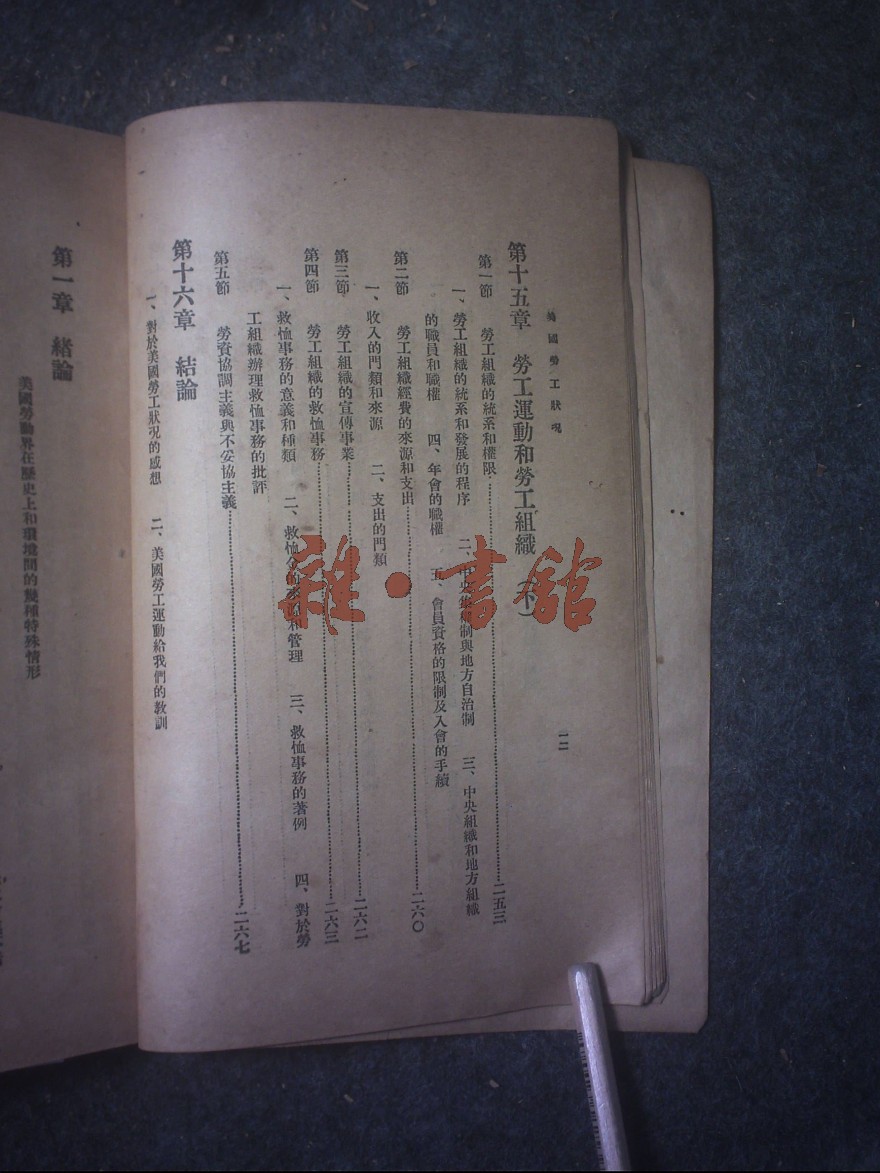 美國勞工狀況
一二
第十五章　勞工運動和勞工組織（下）
第一節　勞工組織的統系和權限……二五三
一、勞工組織的統系和發展的程序　二、中央集權制與地方自治制　三、中央組織和地方組織
的職員和職權　四、年會的職權　五、會員資格的限制及入會的手續
第二節　勞工組織經費的來源和支出……二六〇
一、收入的門類和來源　二、支出的門類
第三節　勞工組織的宣傳事業……二六二
第四節　勞工組織的救恤事務……二六三
一、救恤事務的意義和種類　二、救恤金的來源和管理　三、救恤事務的著例　四、對於勞
工組織辦理救恤事務的批評
第五節　勞資協調主義與不妥協主義……二六七
第十六章　結論
一、對於美國勞工狀況的感想　二、美國勞工運動給我們的教訓
第一章　緒論
美國勞動界在歷史上和環境間的幾種特殊情形
雜·書館